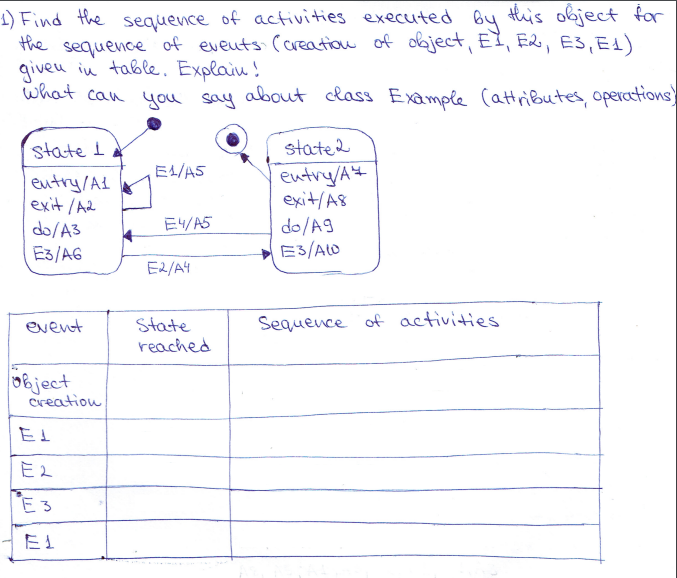 1) Find the sequence of activities executed by this object for
the sequence of events (creation of object, E1, E2, E3, E1)
given in table. Explain!
What can you say about class Example (attributes, operations)
State 1
entry/A1
exit/A2
do/A3
E3/A6
E1/A5
E4/A5
E2/A4
State2
entry/A7
exit/A8
do/A9
E3/A10
event
State
reached
Sequence of activities
Object
creation
E1
E2
E3
E1